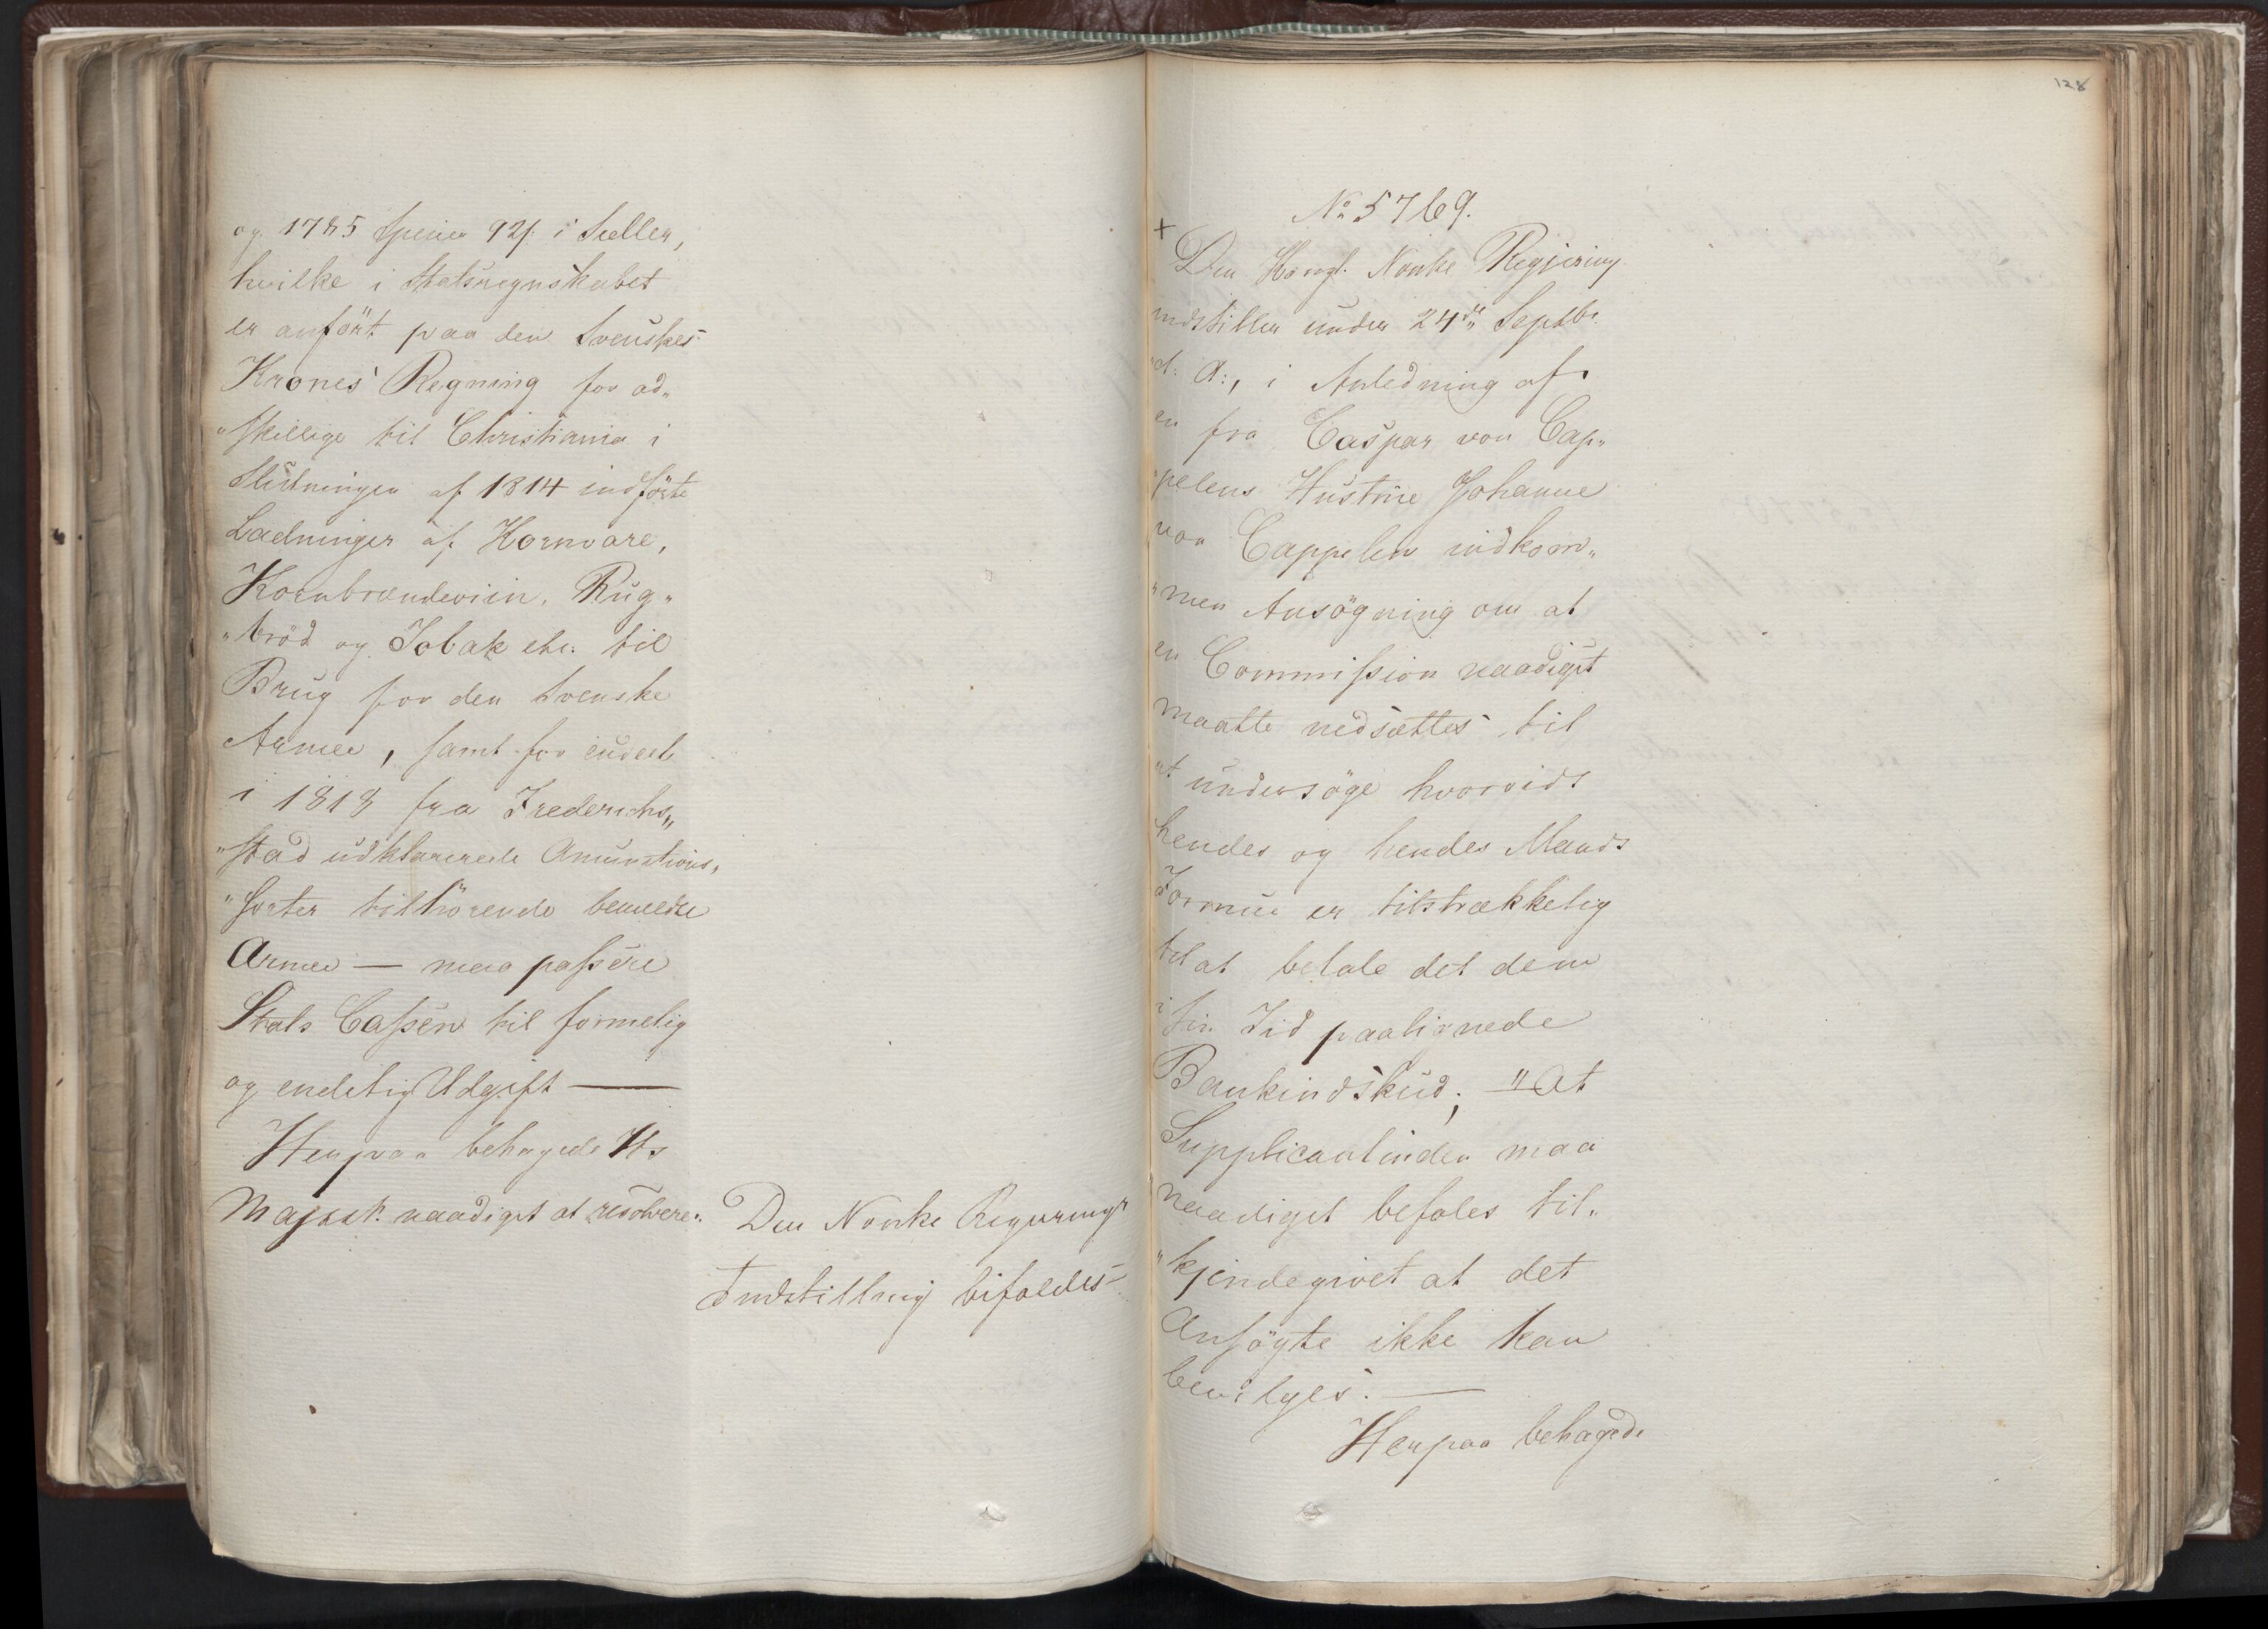 og 1785 Specier 92ſ: i Sedler,
hvilke i Statsregnskabet
er anfört paa den Svenskes
Krones Regning for ad„
„skillige til Christiania i
Slutningen af 1814 indförte
Ladninger af Kornvare,
Kornbrændeviin, Rug„
„bröd og Tobak etc. til
Brug for den Svenske
Armee, samt for endeel
i 1818 fra Frederichs„
„stad udklarerede Amunitions„
„sorter tilhörende bemeldte
Armee — maa passere
Stats Cassen til formelig
og endelig Udgift —
Herpaa behagede Hs
Majestt. naadigst at resolvere:
Den Norske Regjerings
Indstilling bifaldes
128
No 5769.
+
Den Kongl. Norske Regjering
indstiller under 24de Septbr.
d: A:, i Anledning af
en fra Caspar von Cap„
pelens Hustrue Johanne
von Cappelen indkom„
„men Ansögning om at
en Commission naadigst
maatte nedsættes til
at undersöge hvorvidt
hendes og hendes Mands
Formue er tilstrækkelig
til at betale det dem
i sin Tid paalignede
Bankindskud; "At
Supplicantinden maa
naadigst befales til„
„kjendegivet at det
Ansögte ikke kan
bevilges. —
Herpaa behagede